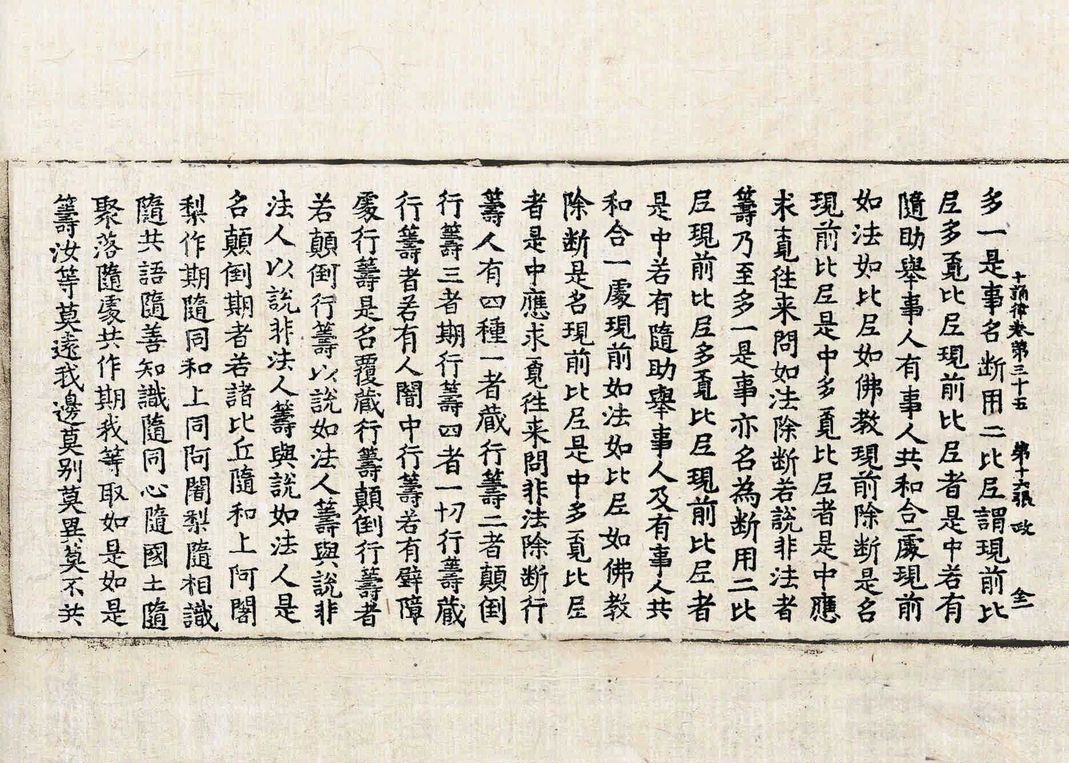 多一是事名断用二比𡰱謂現前比
𡰱多覔比𡰱現前比𡰱者是中若有
隨助舉事人有事人共和合一處現前
如法如比𡰱如佛教現前除断是名
現前比𡰱是中多覔比𡰱者是中應
求覔往来問如法除断若說非法者
籌乃至多一是事亦名為断用二比
𡰱現前比𡰱多覔比𡰱現前比𡰱者
是中若有隨助舉事人及有事人共
和合一處現前如法如比𡰱如佛教
除断是名現前比𡰱是中多覔比𡰱
者是中應求覔往来問非法除断行
籌人有四種一者蔵行籌二者顛倒
行籌三者期行籌四者一切行籌蔵
行籌者若有人闇中行籌若有壁障
處行籌是名覆蔵行籌顛倒行籌者
若顛倒行籌以說如法人籌與說非
法人以說非法人籌與說如法人是
名顛倒期者若諸比丘隨和上阿闍
梨作期隨同和上同阿闍梨隨相識
隨共語隨善知識隨同心隨國土隨
聚落隨處共作期我等取如是如是
籌汝等莫遠我邊莫别莫異莫不共
十誦律卷第三十五 第十六張 政